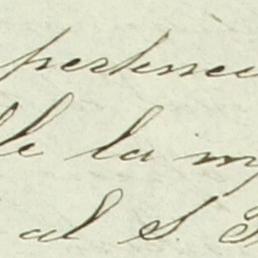 pertenec
le la m
al S